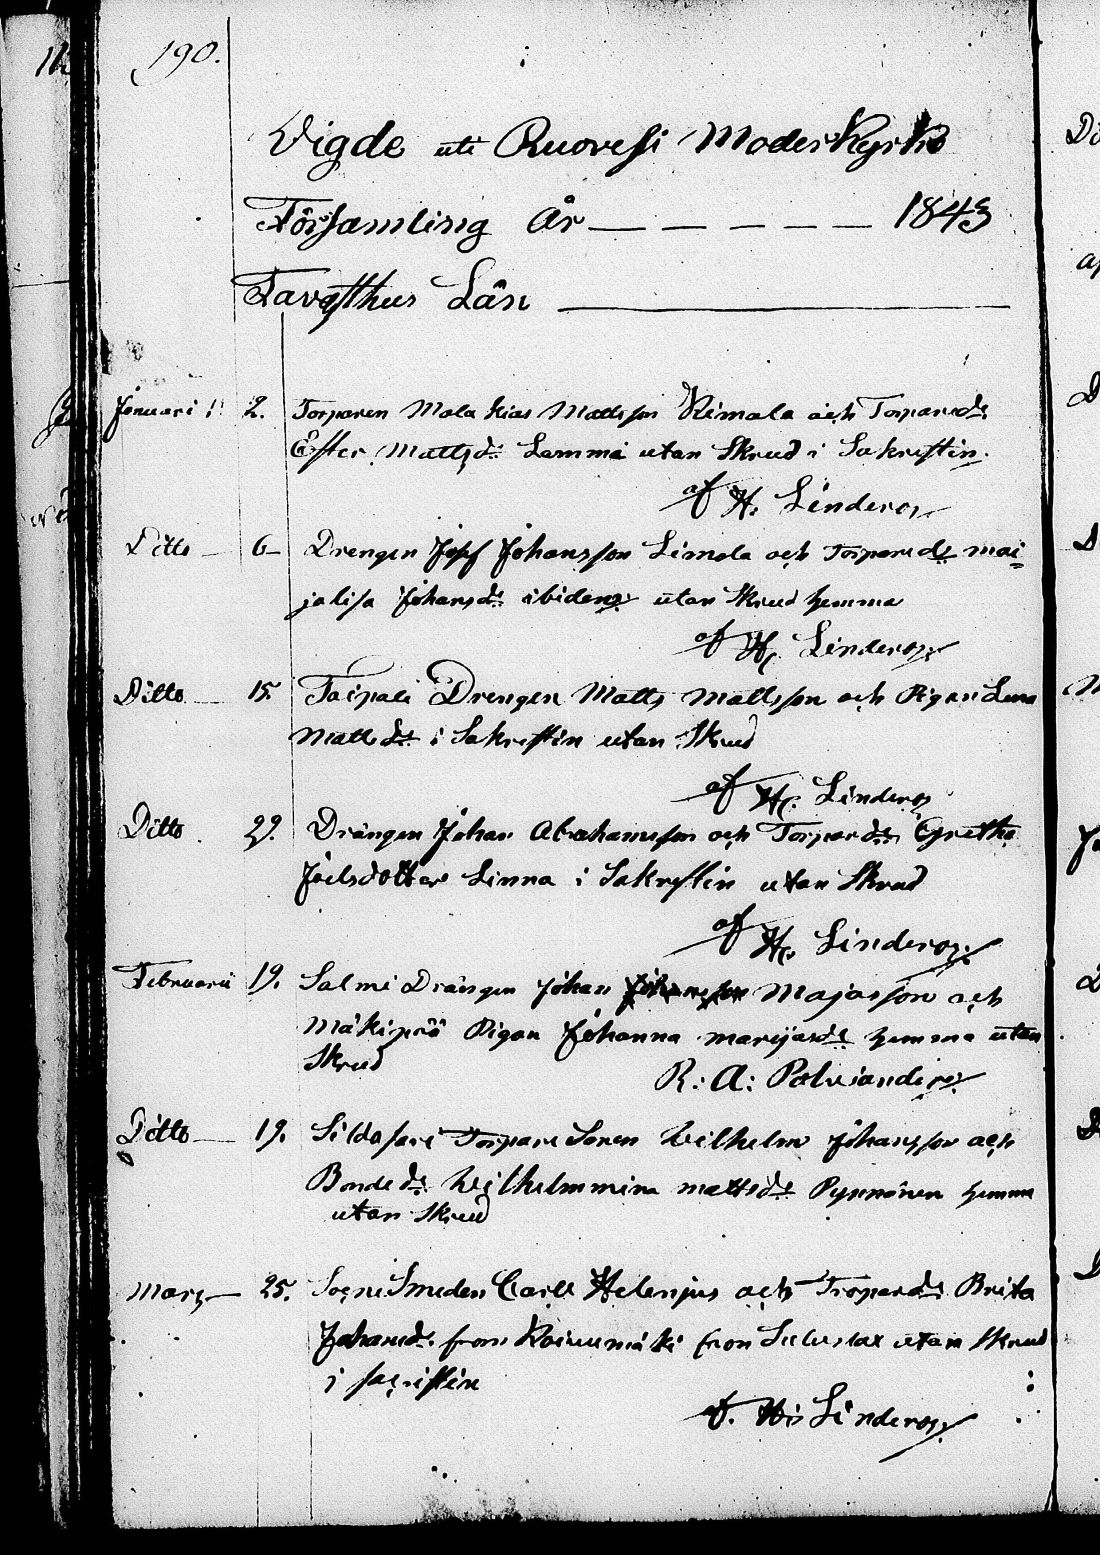 190.
Vigde uti Ruovesi Moderkyrko
Församling År — — — — — 1843
Tavasthus Län
Januari 2. Torparen Malakias Mattsson Kimala och Torpareds
Ester Mattsds Lammi utan Skrud i Sakristin.
af H. Linderoos
Ditto — 6 — Drengen Josef Johansson Limola och Torpareds mai=
jalisa Johansds ibidem utan Skrud hemma
af H. Linderoos
Ditto — 15. Taipale Drengen Matts Mattsson och Pigan Lena
Mattsds i Sakristin utan Skrud
af H. Linderoos
Ditto 29. Drängen Johan Abrahamsson och Torpards Gretha
Joelsdotter Linna i Sakristin utan Skrud
af H. Linderoos
Februarii 19. Salmi Drängen Johan Majasson och
Mäkipää Pigan Johanna marijasds hemma utan
Skrud
R: A: Polviander
Ditto — 19. Sildasari Torpare Sonen Wilhelm Johansson och
Bondeds Wilhelmmina mattsds Pynnönen hemma
utan Skrud
Mars — 25. SocneSmeden Carll Helenius och Tropards Brita
Johansds from Koivumäki fron utan Skrud
i sacristin
af. H: Linderoos